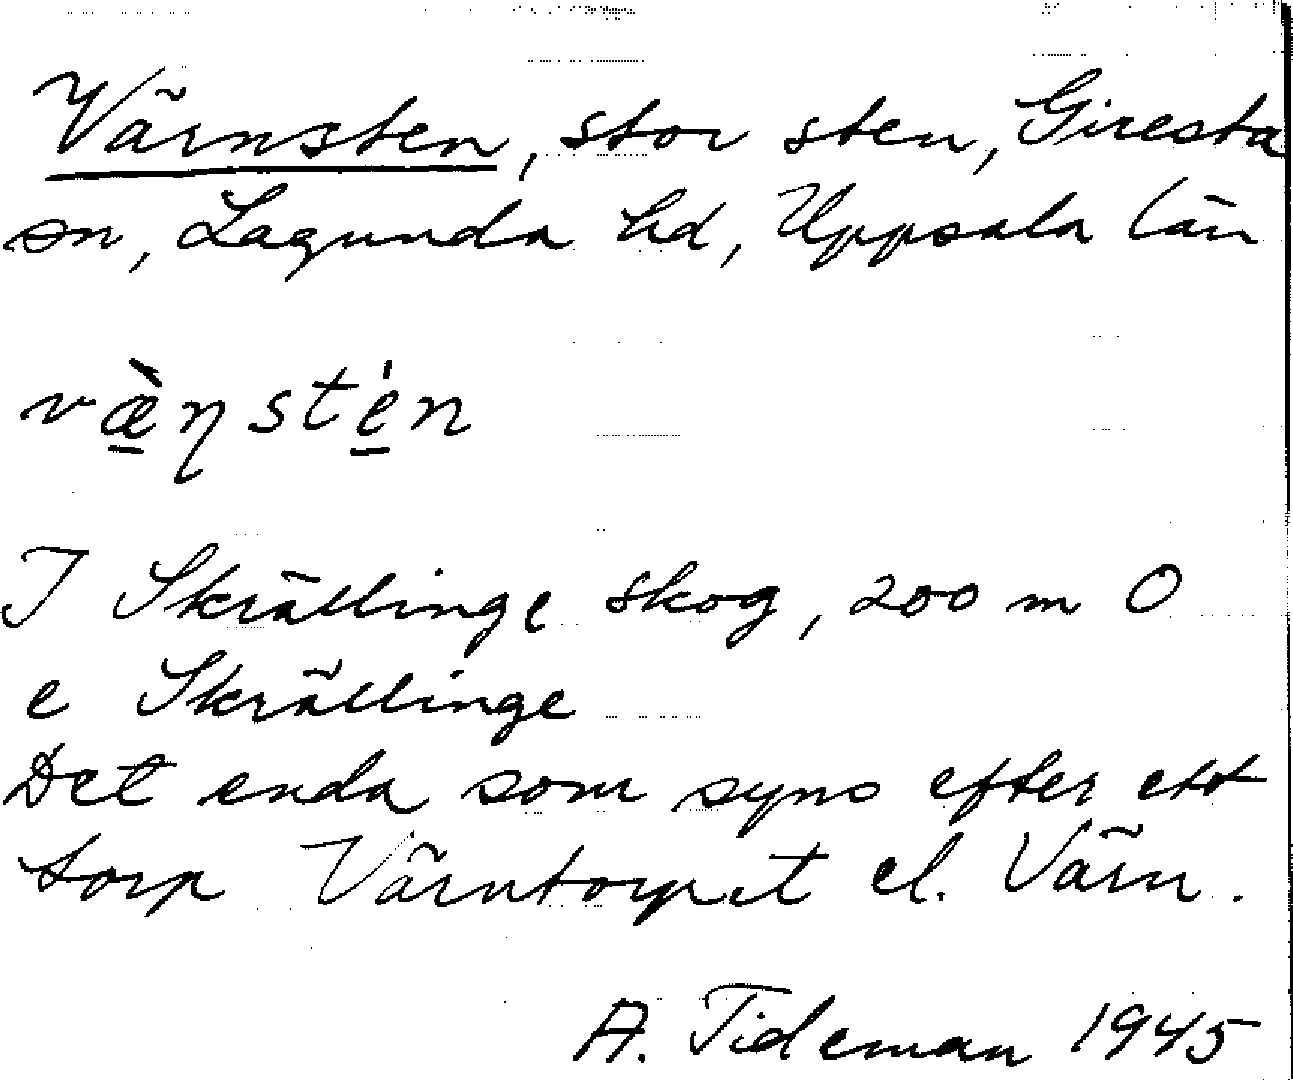 Värnsten, stor sten, Giresta
sn, Lagunda hd, Uppsala län
væ̠̀ŋsté̠n
I Skrällinge skog, 200 m O
e Skrällinge
Det enda som syns efter ett
torp Värntorpet el. Värn.
A. Tideman 1945